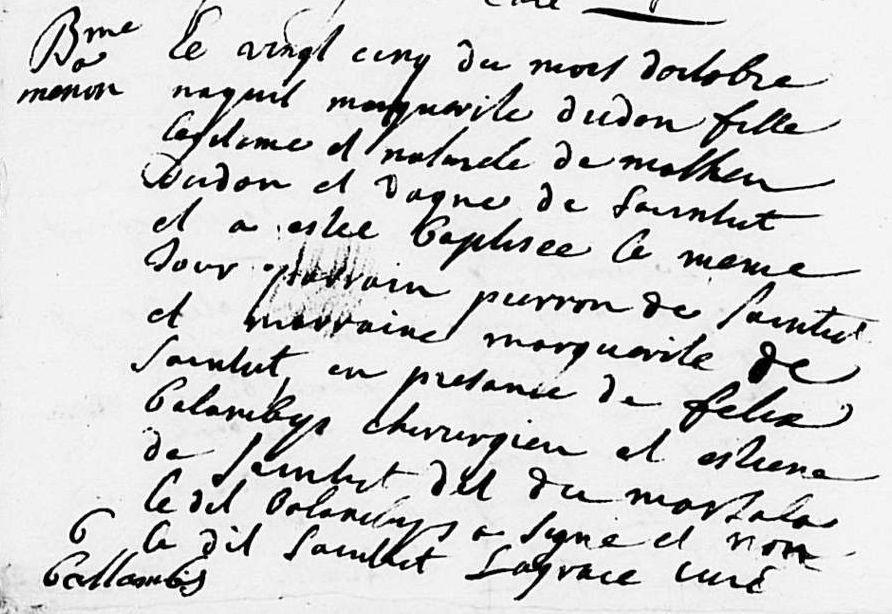 Curé
Bme
a
menon
Le vingt cinq du mois doctobre
naquit marguerite dudon fille
legitime et naturele de matheu
dudon et dagne de Saintut
et a estee baptisee le meme
Jour parrain pierron de Saintut
et marraine marguerite de
Saintut en presance de felix
chirurgien et estiene
de Saintut dit du
le dit a signe et non
le dit Saintut Lagrace curé